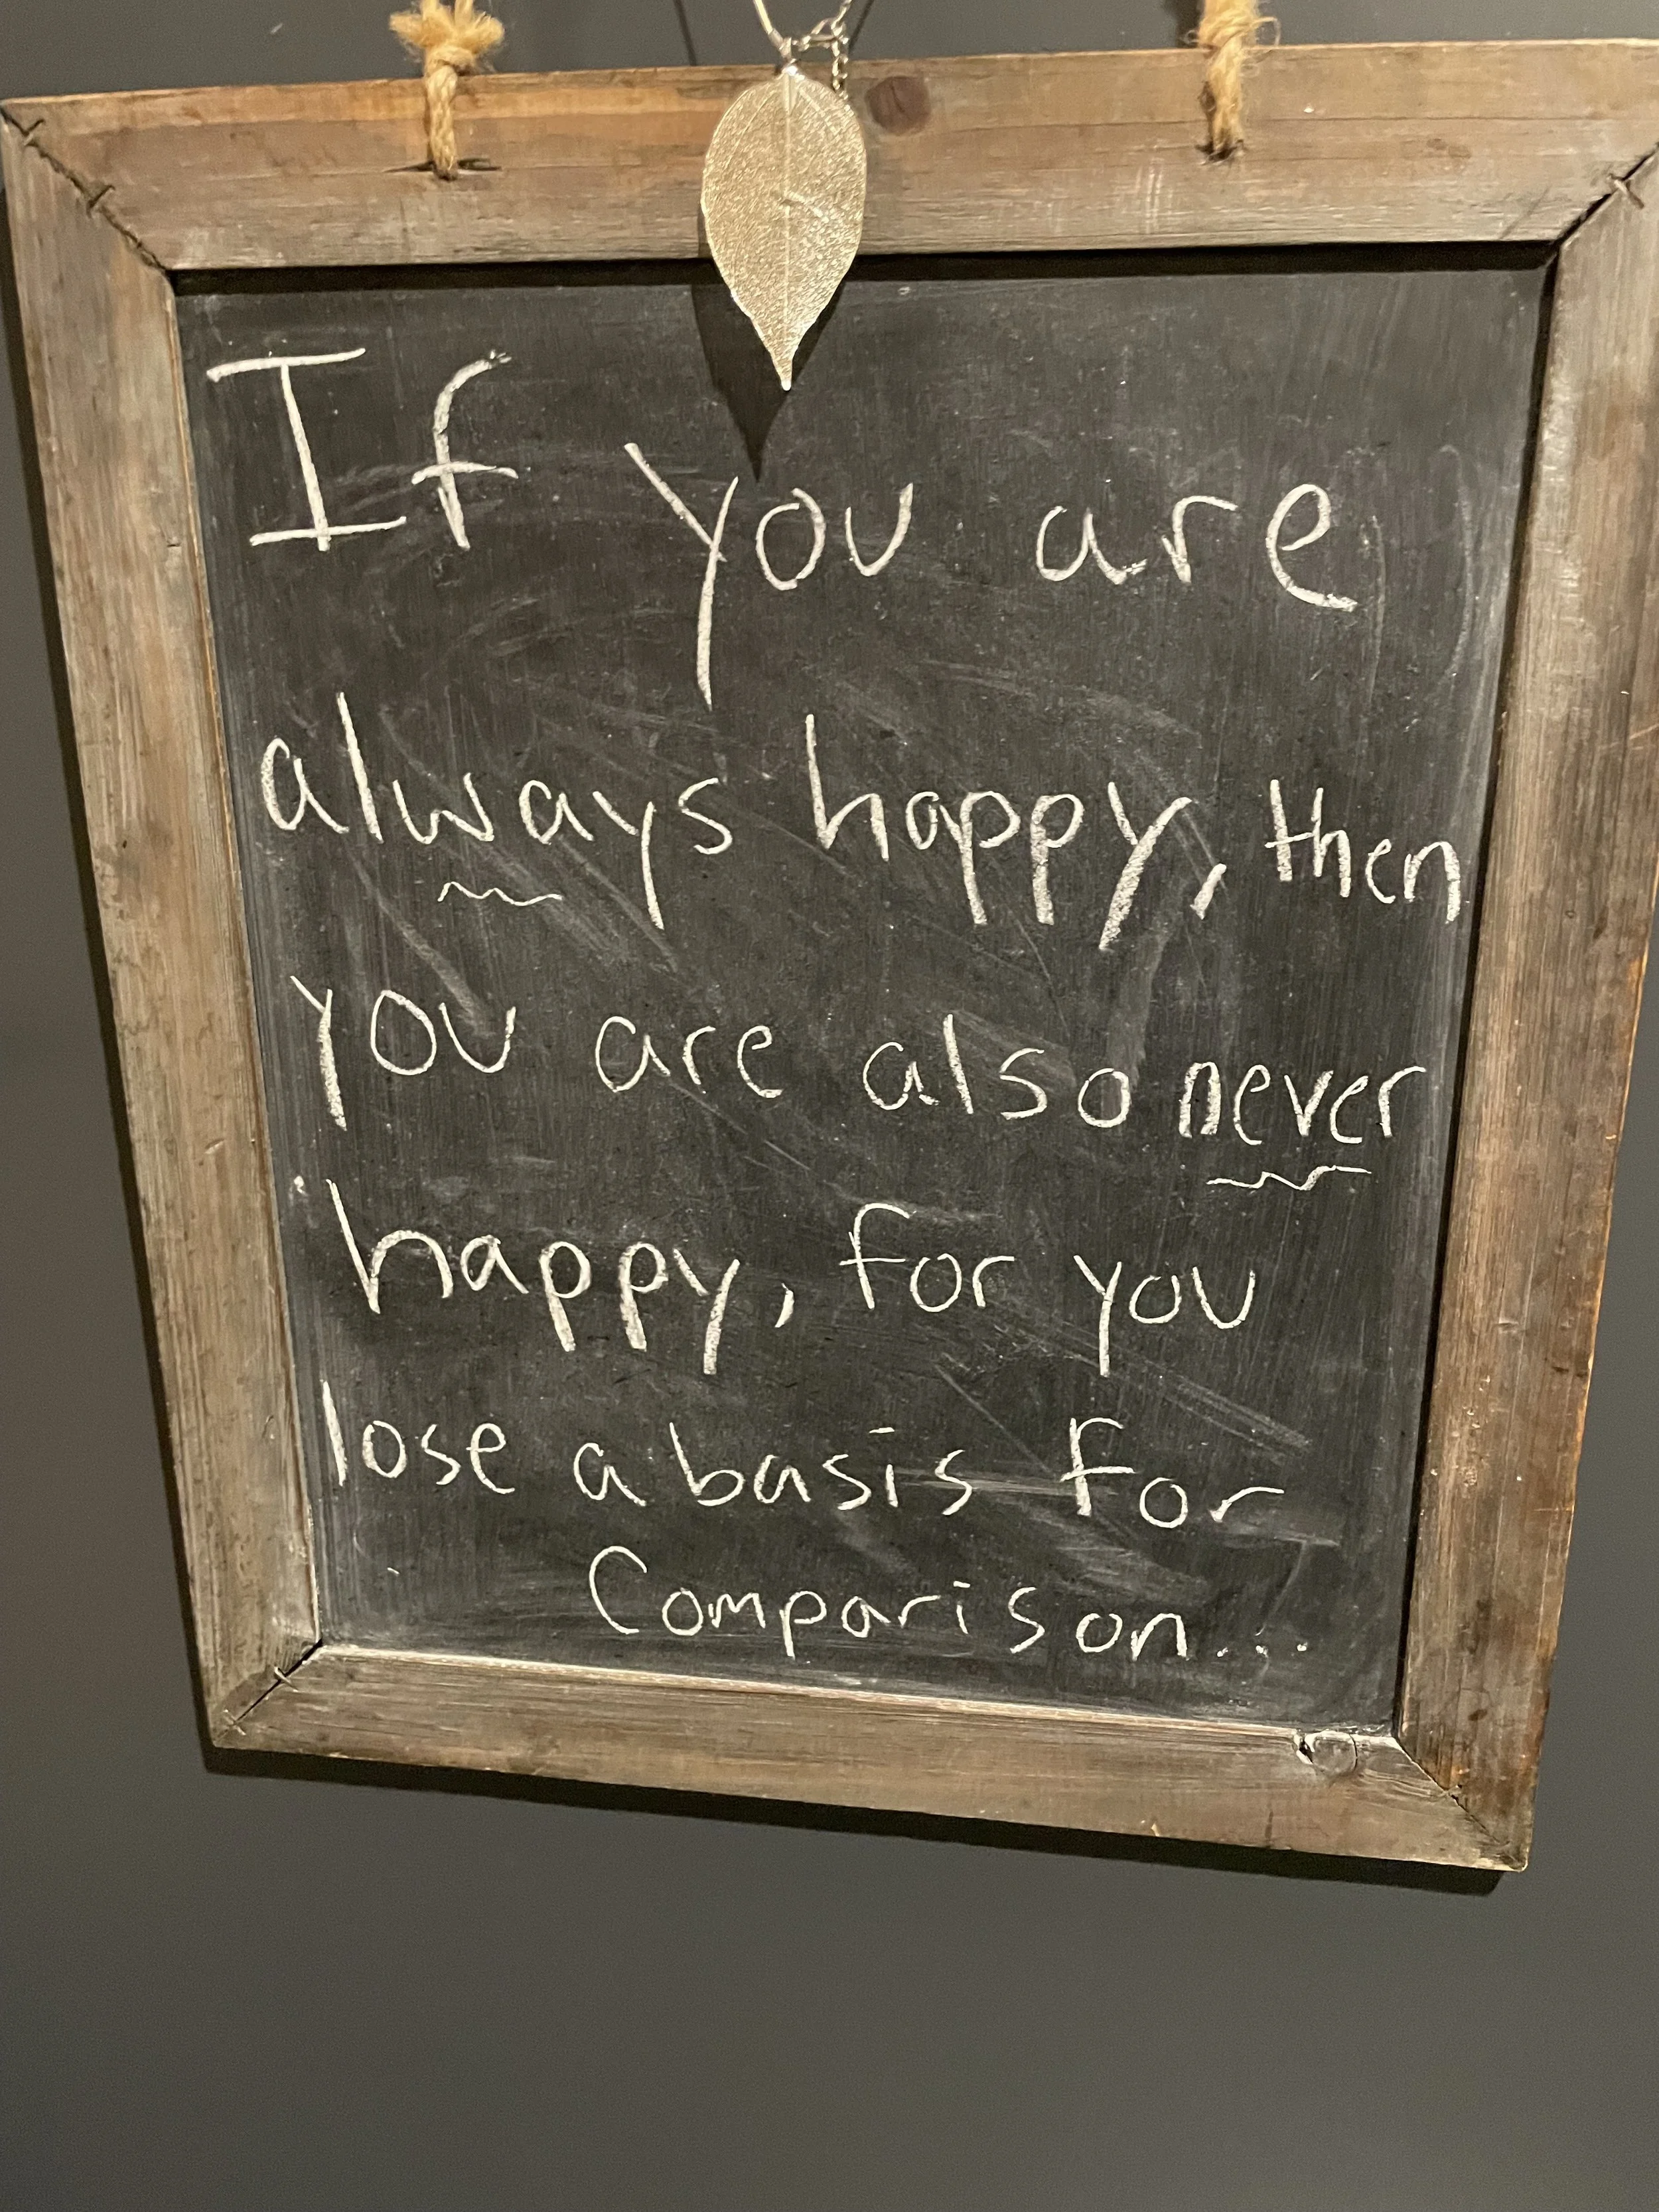 If you are
always happy, then
you are also never
happy, for you
lose a basis for
Comparison...